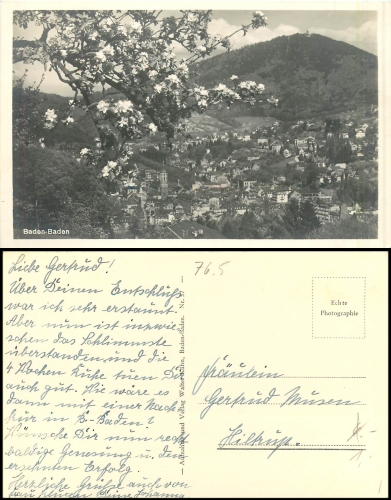 Baden-Baden
Liebe Gertrud!
Über Deinen Entschluß
war ich sehr erstaunt.
Aber nun ist inzwi-
schen das Schlimmste
überstanden, und die
4 Wochen Ruhe tuen Dir
auch gut. Wie wäre es
dann mit einer Nach-
kur in B-Baden?
Wünsche Dir nun recht
baldige Genesung u. den
ersehnten Erfolg.
Herzliche Grüße auch von
Deine Johanna
76.5
Echte
Photographie
Fräulein
Gertrud Musen
Hiltrup.